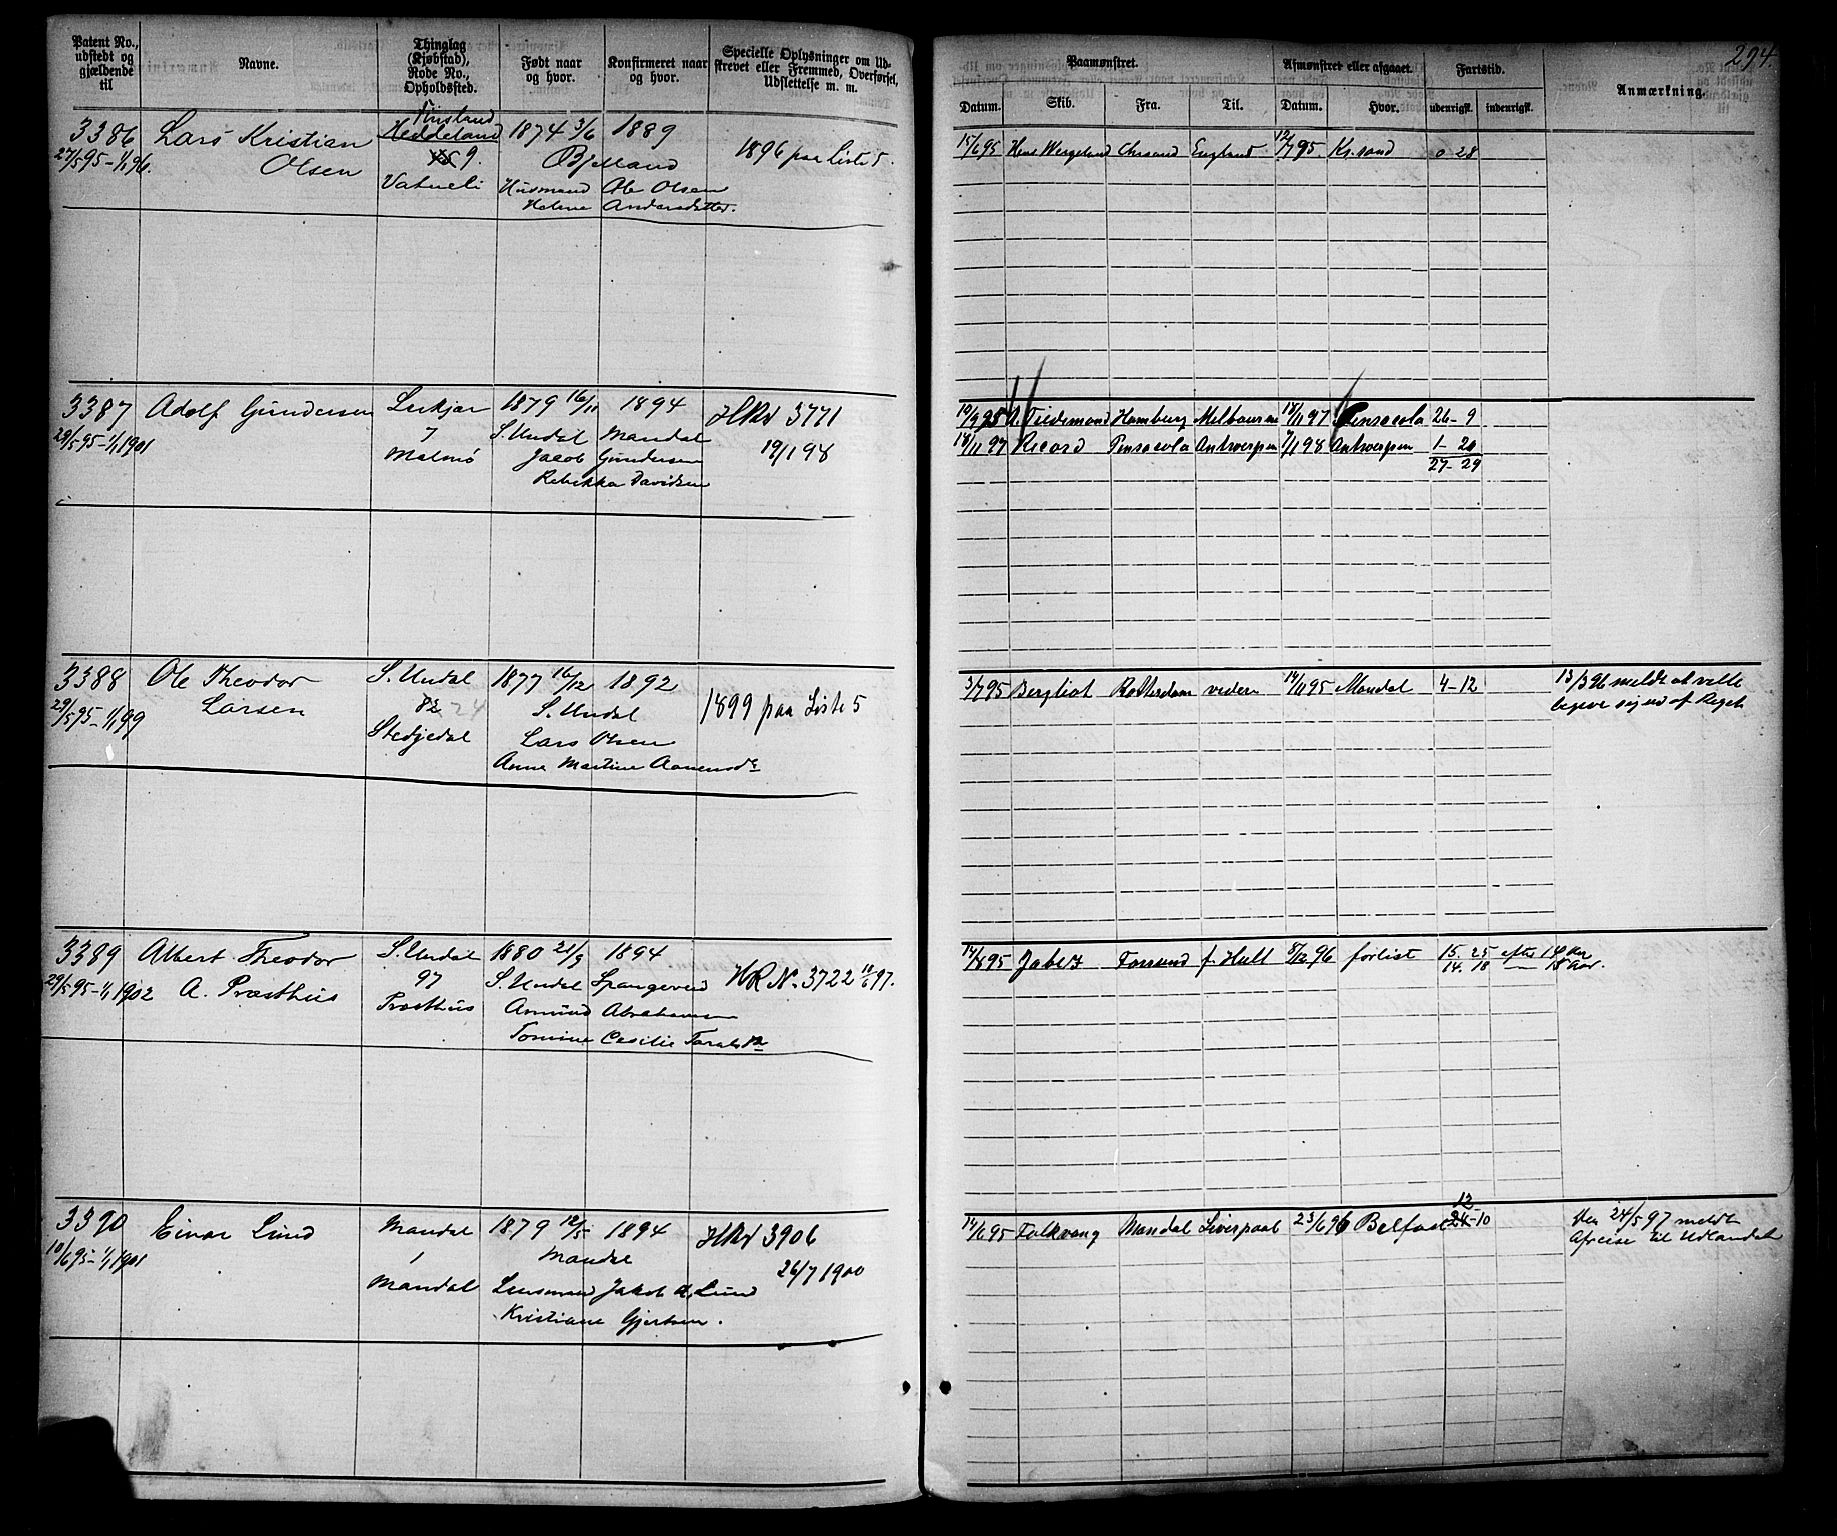 294.
Patent No., udstedt og gjældende til
Navne.
Thinglag (Kjøbstad), Rode No., Opholdssted.
Født naar og hvor.
Konfirmeret naar og hvor.
Specielle Oplysninger om Udskrevet eller Fremmed, Overførsel, Udslettelse m. m.
Paamønstret.
Afmønstret eller afgaaet.
Fartstid.
Anmærkning.
Datum. Skib. Fra. Til. Datum. Hvor. udenrigsk. indenrigsk.
3386
27/5 95 - 1/1 96.
Lars Kristian
Olsen
Finsland
Heddeland
9.
Vatneli
1874 3/6 1889
Bjelland
Husmand Ole Olsen
Helene Andersdatter.
1896 paa Liste 5.
15/6 95 Hens Wergeland Chrsand England 12/7 95 Kr.sand 0 28
3387
29/5 95 - 1/1 1901
Adolf Gundersen
7
Malmø
1879 16/11 1894
S. Undal Mandal
Jacob Gundersen
Rebekka Davidsen
HRN 3771
19/1 98
10/9 95 A. Tidemand Hamburg Melbourne 18/11 97 Pensacola 26-9
18/11 97 Ricard Pensacola Antwerpen 7/1 98 Antwerpen 1-20
27-29
3388
29/5 95 - 1/1 99
Ole Theodor
Larsen
S. Undal
82 24
Stedjedal
1877 16/12 1892
S. Undal
Lars Olsen
Anne Martine Aanensdr
1899 paa Liste 5
3/7 95 Bergliot Rotterdam videre 14/11 95 Mandal 4-12
13/3 96 meldt at ville
begive sig ud af Riget
3389
29/5 95 - 1/1 1902
Albert Theodor
A. Præsthus
S. Undal
97
Præsthus
1880 21/9 1894
S. Undal Spangereid
Asmund Abrahamsen
Tomine Cecilie Taralsdr
HR N. 3722 11/6 97.
14/8 95 Jabez Farsund f. Hull 8/12 96 forlist 15. 25 efter 14
14. 18 — 15 Aar.
3390
10/6 95 - 1/1 1901
Einar Lund
Mandal
1
Mandal
1879 12/5 1894
Mandal
Lensmand Jakob A. Lund
Kristiane Gjertsen.
HRN 3906
26/7 1900
14/6 95 Falkvang Mandal Liverpool 23/6 96 Belfast 12
24-10
24/5 97 meldt
Afreise til Udlandet